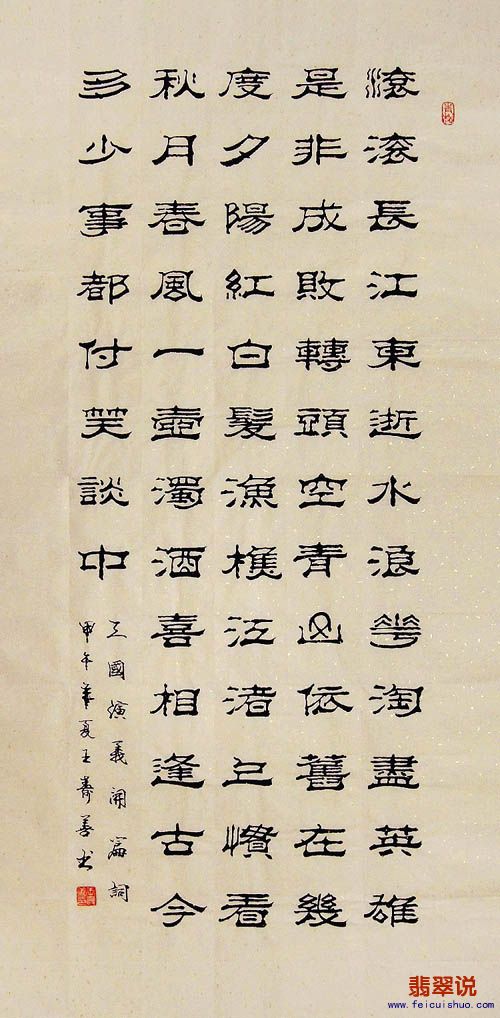 滚滚長江東逝水浪花淘盡英雄
是非成敗轉頭空青山依舊在幾
度夕陽紅白髮漁樵江渚上慣看
秋月春風一壺濁酒喜相逢古今
多少事都付笑談中
三國演義開篇詞
甲午年夏王壽善书
翡翠说
www.feicuishuo.com